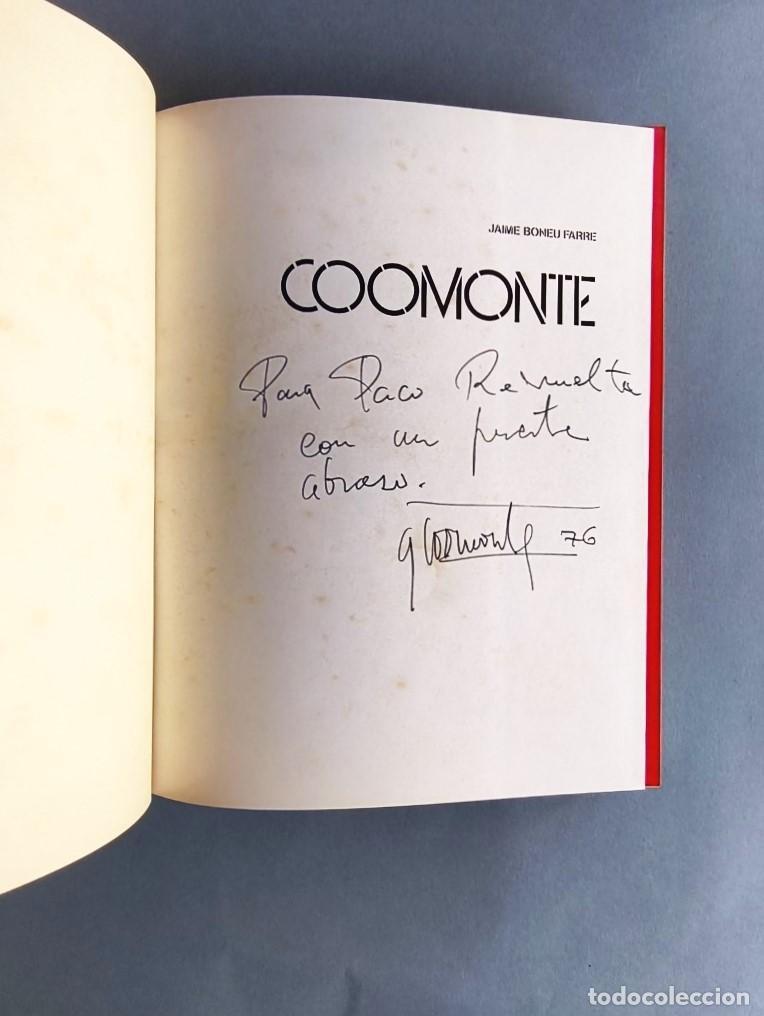 JAIME BONEU FARRE
COOMONTE
Para Paco Revuelta
con un fuerte
abrazo.
Coomonte 76
todocoleccion